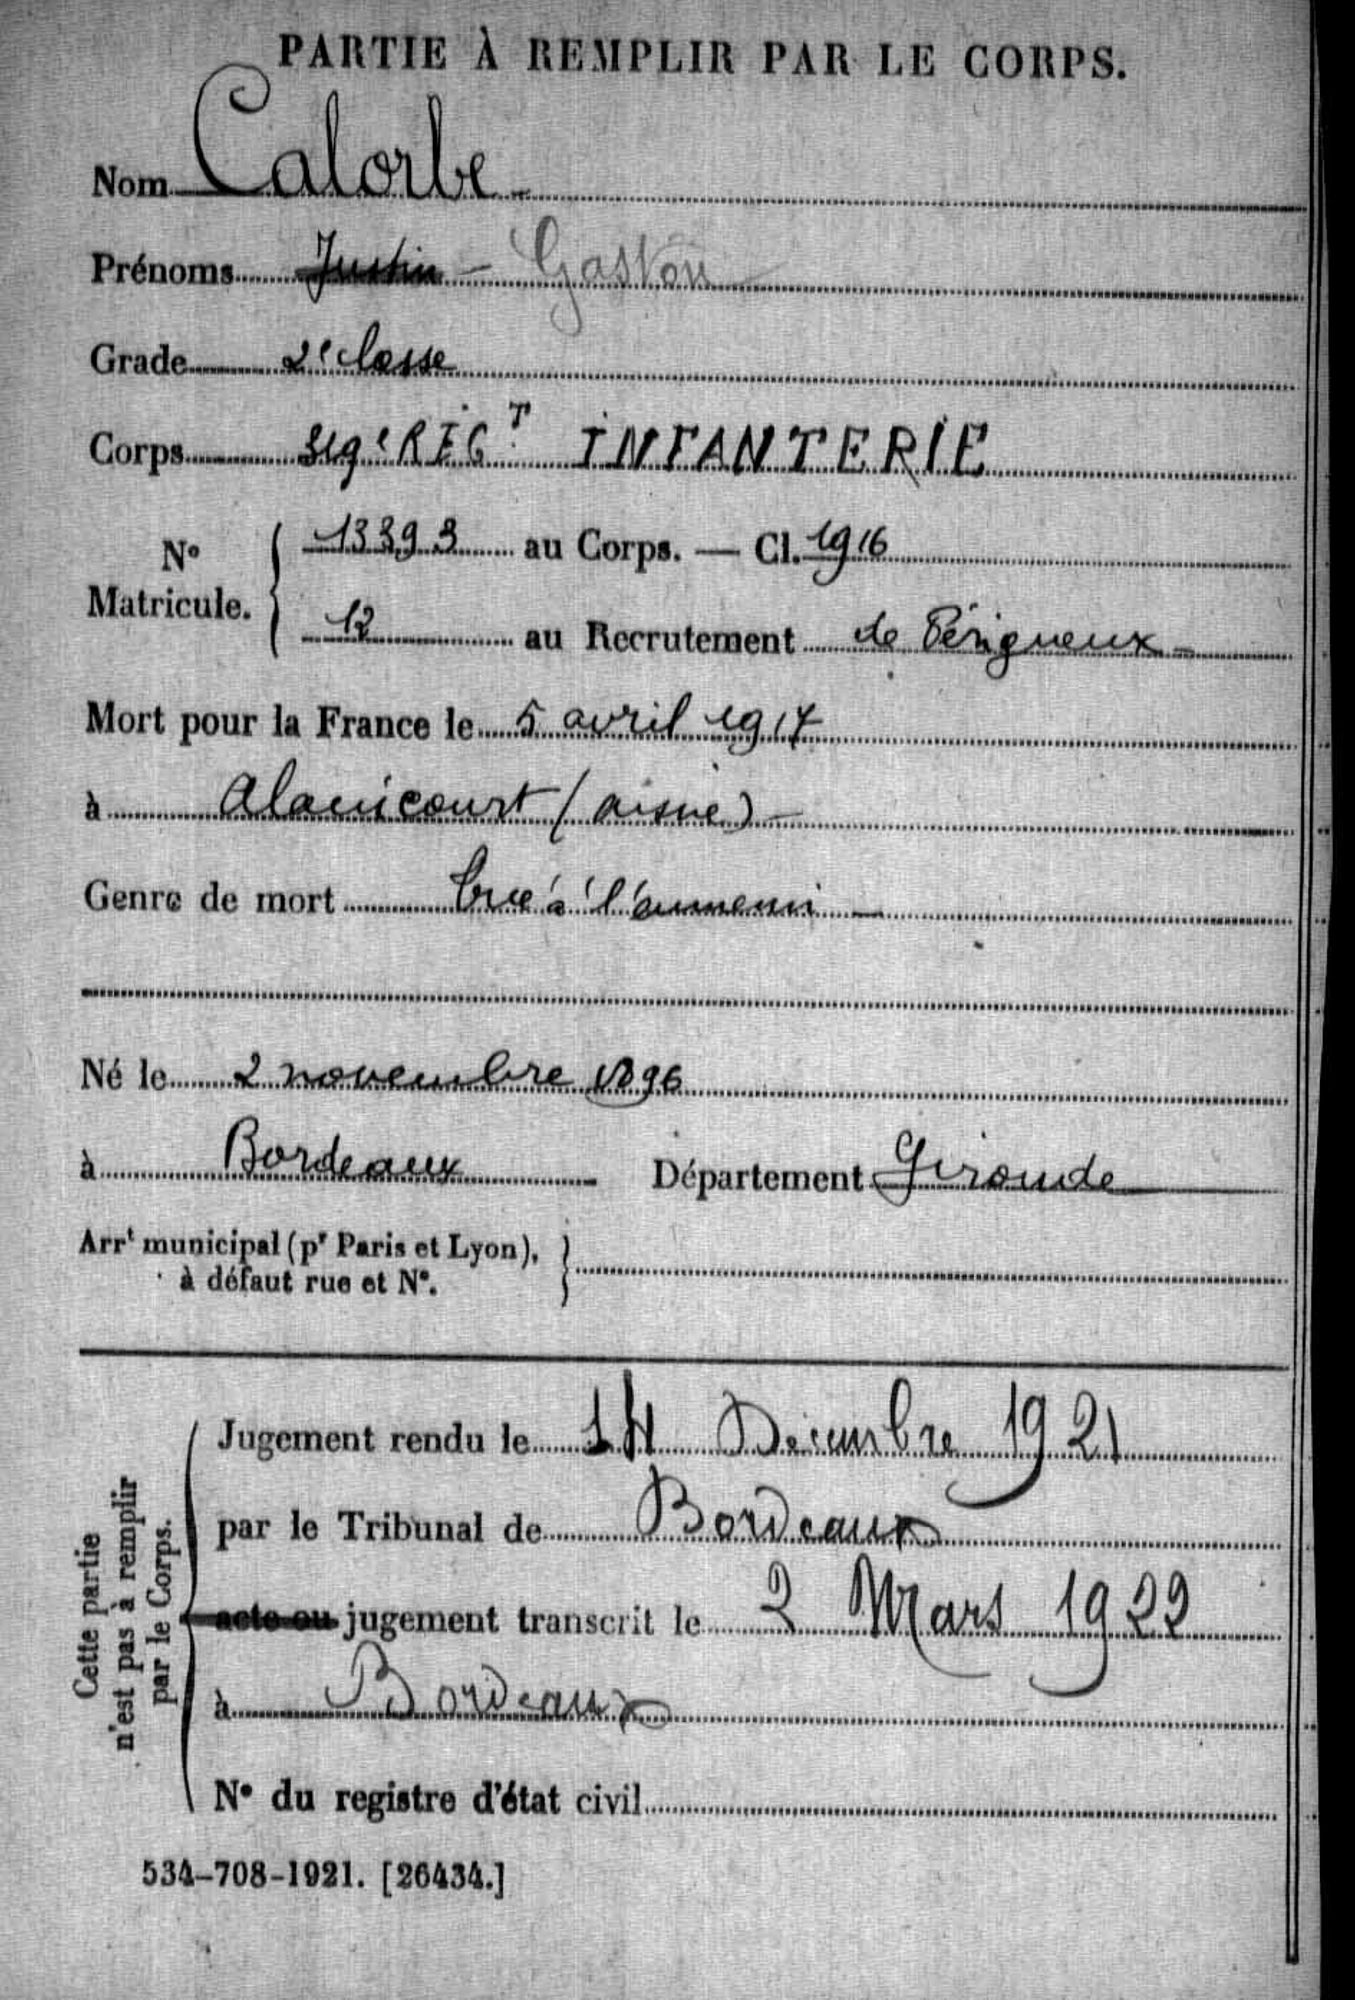 PARTIE À REMPLIR PAR LE CORPS.
Nom Calorbe
Prénoms Justin - Gaston
Grade 2e classe
Corps 319e REGT INFANTERIE
N° Matricule. 13393 au Corps. — Cl. 1916
12 au Recrutement de Périgueux
Mort pour la France le 5 avril 1917
à (aisne)
Genre de mort tué à l'ennemi
Né le 2 novembre 1896
à Bordeaux Département Gironde
Arrt municipal (pr Paris et Lyon),
à défaut rue et N°.
Cette partie
n'est pas à remplir
par le Corps.
Jugement rendu le 14 Décembre 1921
par le Tribunal de Bordeaux
acte ou jugement transcrit le 2 Mars 1922
à Bordeaux
N° du registre d'état civil
534-708-1921. [26434.]